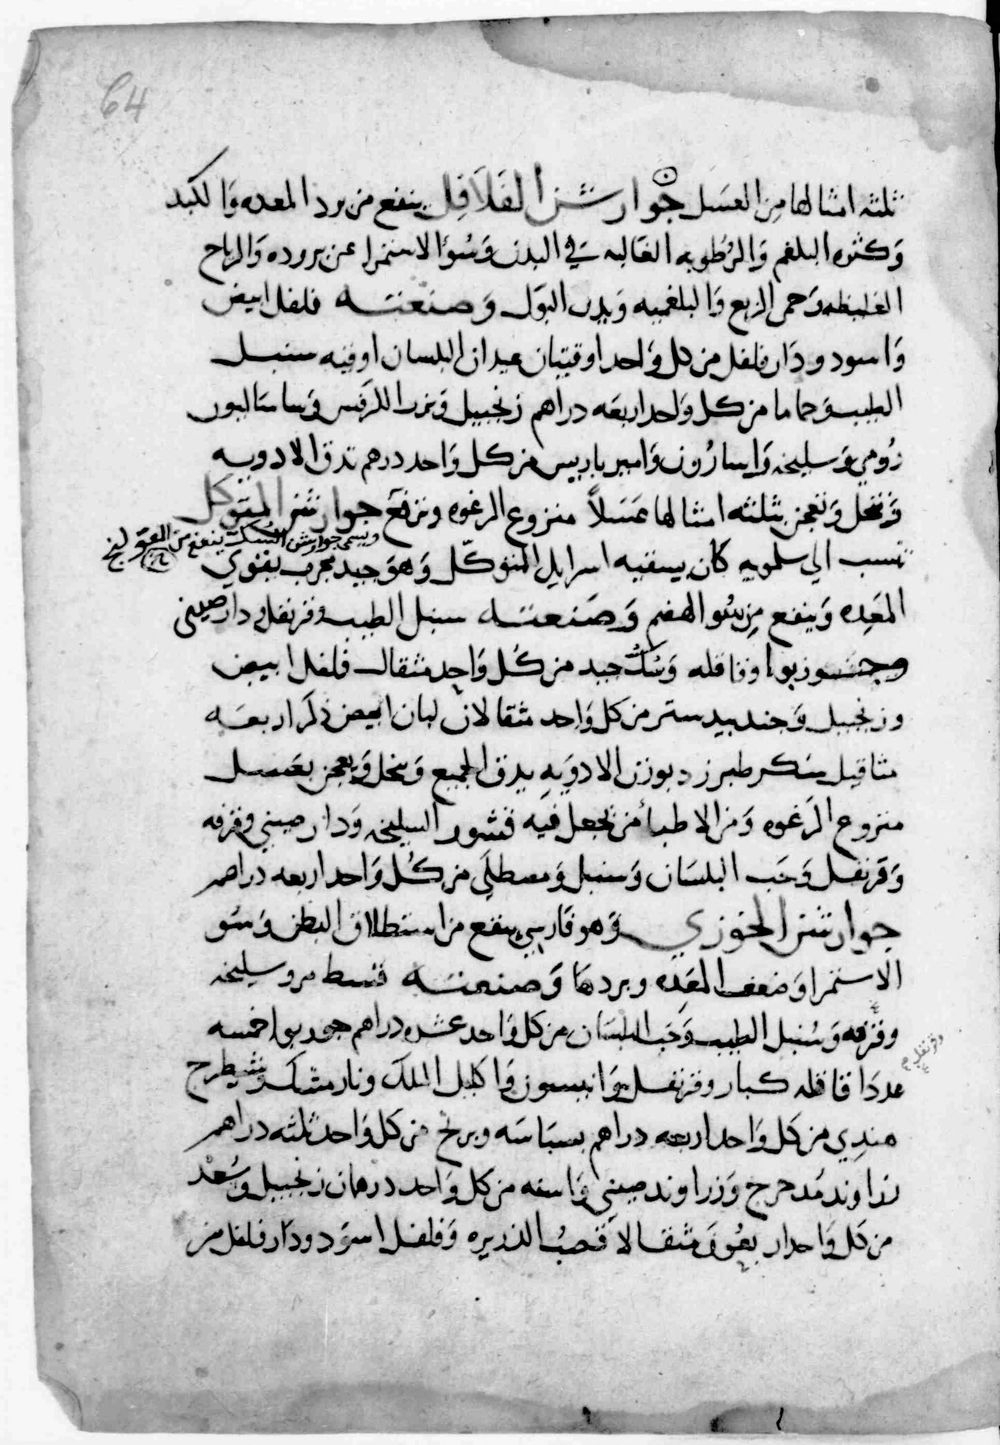 64
ثلثه امثالها من العسل جوارشن الفلافل ينفع من برد المعده والكبد
وكثره البلغم والرطوبه الغالبه في البدن وسؤ الاستمرا عن بروده والرياح
الغليظه وحمى الربع والبلغميه ويدر البول وصنعته فلفل ابيض
واسود ودار فلفل من كل واحد اوقيتان عيدان البلسان اوقيه سنبل
الطيب وحماما من كل واحد اربعه دراهم زنجبيل وبزر الكرفس وساساليوس
رومي وسليخه واسارون وامبرباريس من كل واحد درهم تدق الادويه
وتنخل وتعجن بثلثه امثالها عسلاً منزوع الرغوه وترفع جوارشن المتوكل
ويسمى جوارشن المسك ينفع من القولنج
تنسب الي سلمويه كان يسقيه اسرايل المتوكّل وهو جيد مجرب يقوي
المعده وينفع من سو الهضم وصنعته سنبل الطيب وقرنفل ودار صيني
وجوزبوا وقاقله وسك جيد من كل واحد مثقال فلفل ابيض
وزنجبيل وجندبيدستر من كل واحد مثقالان لبان ابيض ذكر اربعه
مثاقيل سكر طبرزد بوزن الادويه يدق الجميع وينخل ويعجن بعسل
منزوع الرغوه ومن الاطبأ من يجعل فيه قشور السليخه ودار صيني وقرفه
وقرنفل وحب البلسان وسنبل ومصطكي من كل واحد اربعه دراهم
جوارشن الخوزي وهو فارسي ينفع من استطلاق البطن وسو
الاستمرا وضعف المعده وبردها وصنعته قسط مر وسليخه
وقرفه وسنبل الطيب وحب البلسان من كل واحد عشره دراهم جوز بوا خمسه
وقرنفل
عددا قاقله كبار وقرنفل وانيسون واكليل الملك ونارمشك وشيطرج
هندي من كل واحد اربعه دراهم بسباسه وبرنج من كل واحد ثلثه دراهم
زراوند مدحرج وزراوند صيني واشنه من كل واحد درهمان زنجبيل وسعد
من كل واحد اربعون مثقالا قصب الذريره وفلفل اسود ودار فلفل من